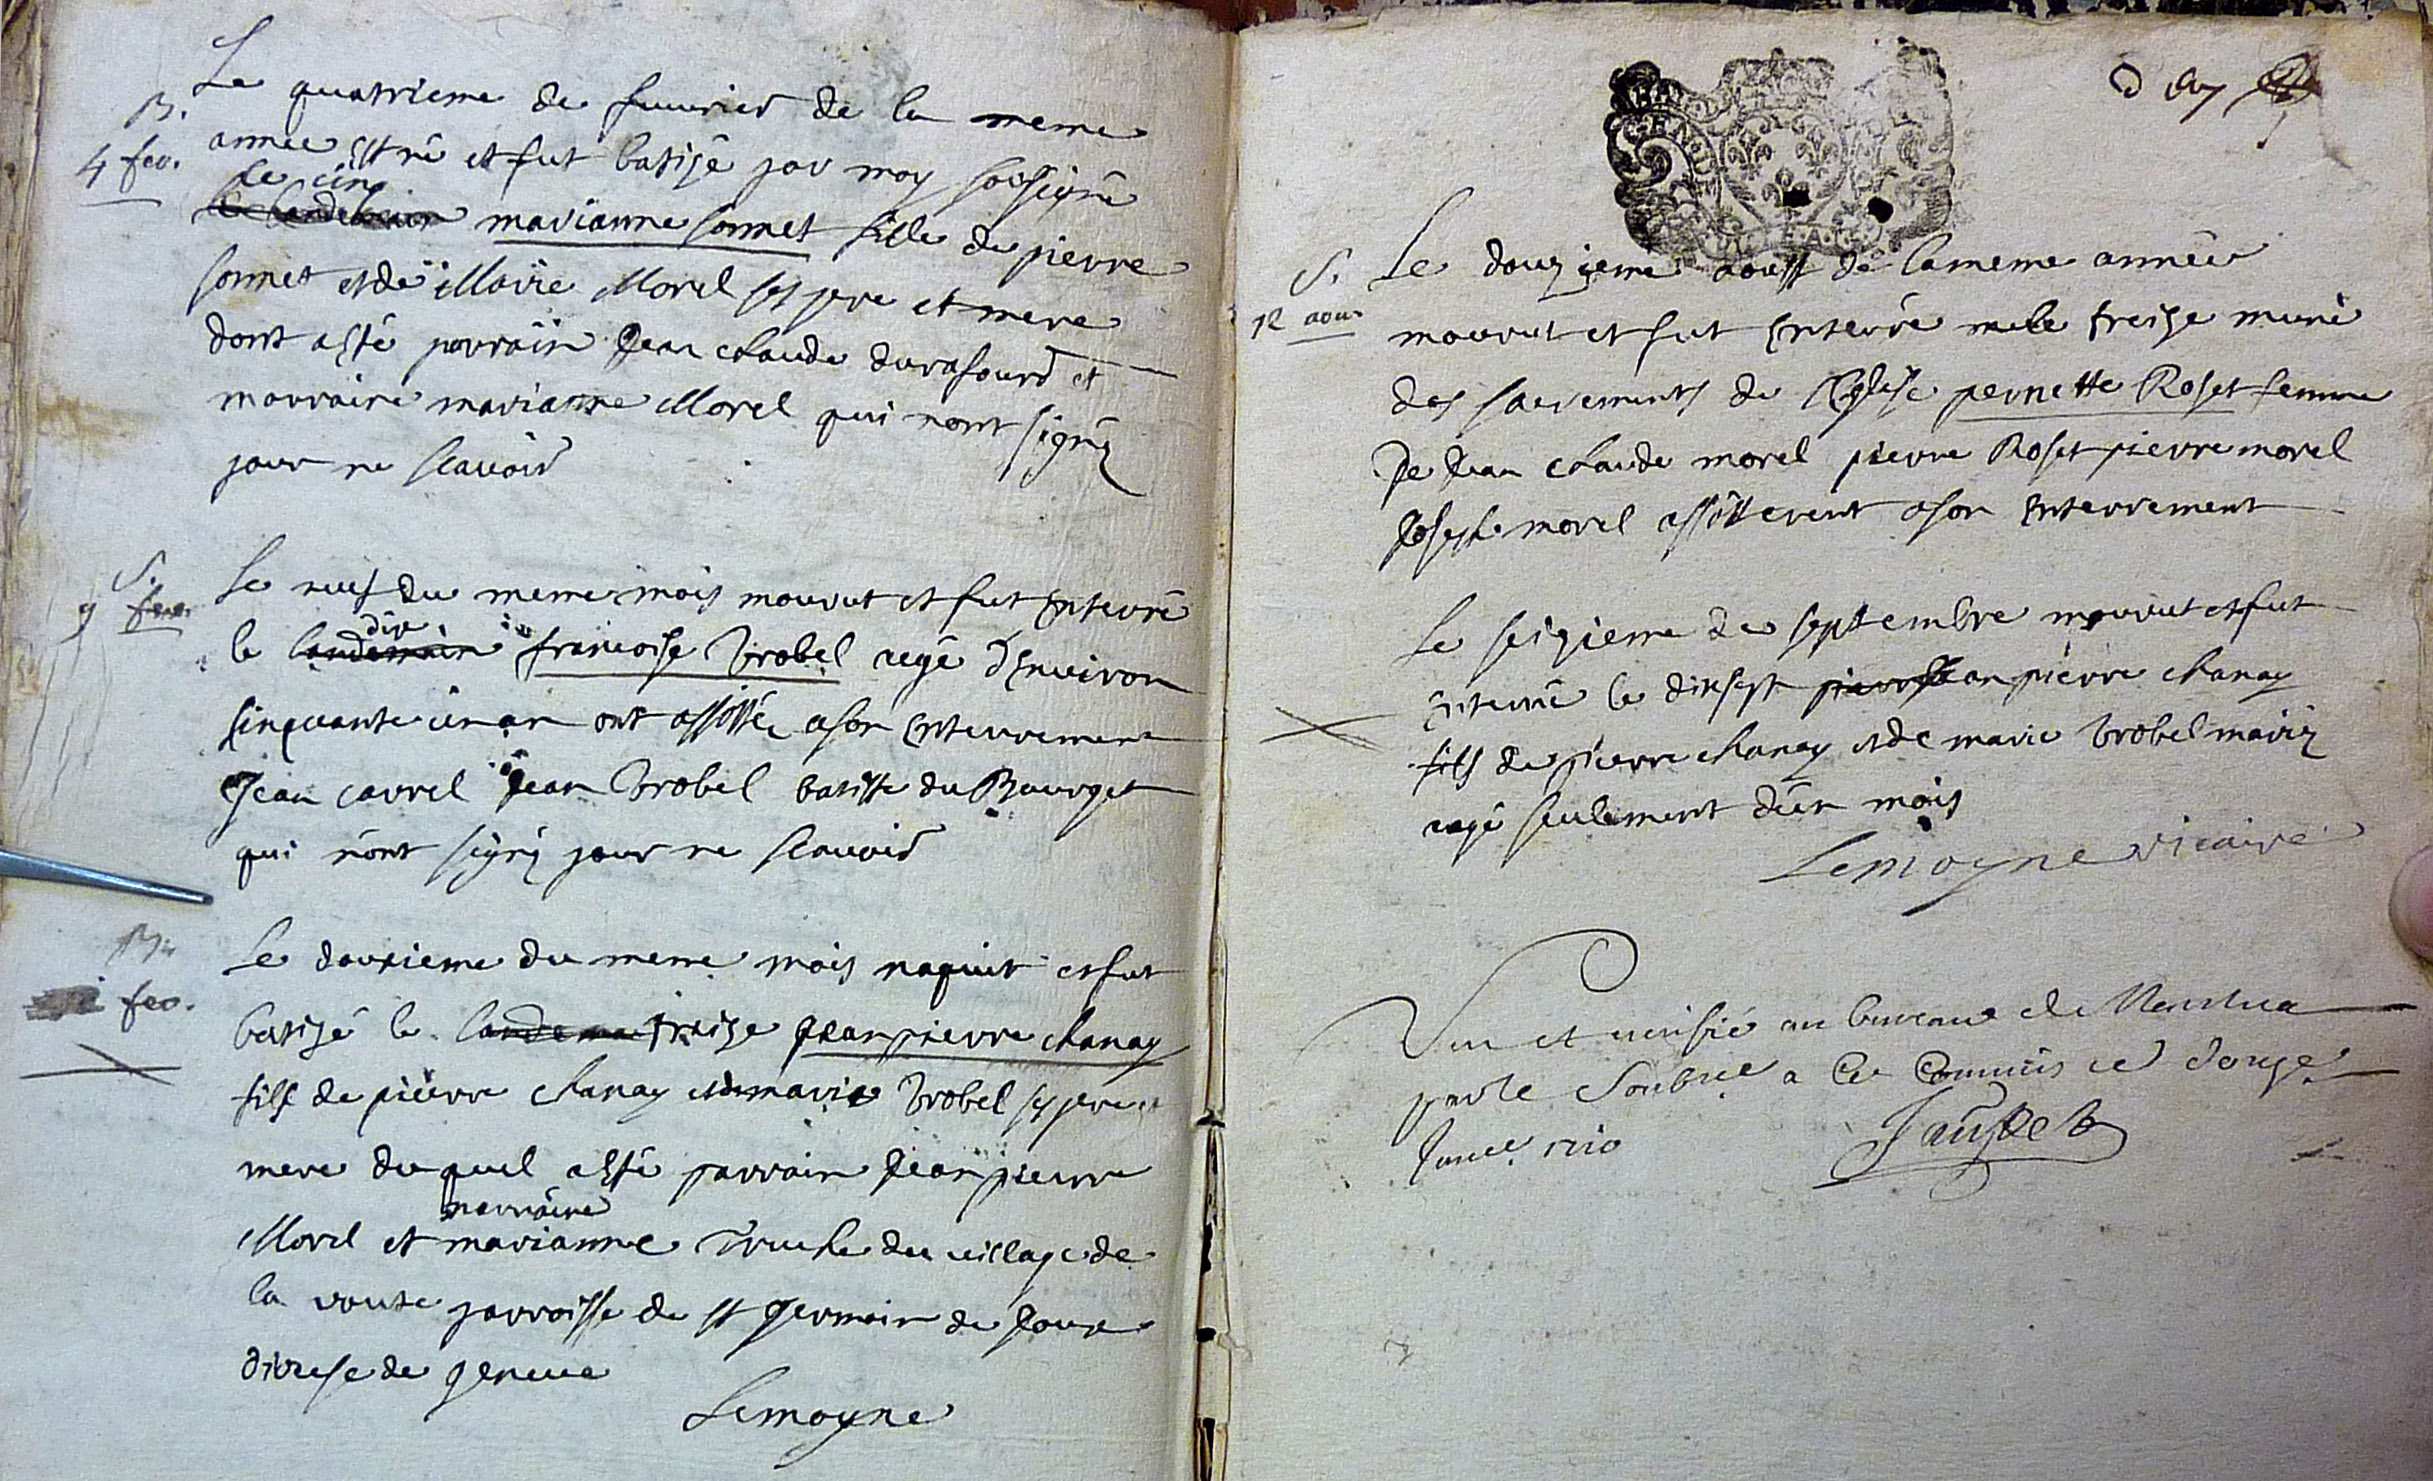 Le quatrieme de feuvrier de la meme
B.
4 fev.
annee est né et fut batisé par moy sousigné
le cinq
le landemain marianne sonnet fille de pierre
sonnet et de Marie Morel ses pere et mere
dont a esté parrain Jean claude durafourd et
marraine marianne Morel qui nont signéz
pour ne scavoir
S.
9 fev.
Le neuf du meme mois mourut et fut enterré
dix
le landemain francoise Brobel agé d'environ
sinquante un an ont assisté a son enterrement
Jean carrel Jean Brobel batiste du Bourget
qui n'ont signéz pour ne scavoir
B.
fev.
Le douxieme du meme mois naquit et fut
batisé le landemain treise Jean pierre chanay
fils de pierre chanay et de marie Brobel ses pere et
mere du quel a esté parrain Jean pierre
marraine
Morel et marianne Truche du village de
la voute parroisse de st germain de Joux
diocese de geneve
Lemoyne
S.
12 aou.
Le douzieme aoust de la meme année
mourut et fut enterré mesle treise muni
des sacrements de l'Eglise pernette Roset femme
De Jean claude morel pierre Roset pierre morel
Joseph morel assisterent a son enterrement
Le seizieme de septembre mourut et fut
enterré le dixsept pierre Jean pierre chanay
fils de pierre chanay et de marie Brobel mariéz
agé seulement d'un mois
Lemoyne vicaire
Vu et verifié au bureau de Nantua
par le Soubne a Ce Commis ce douze
Janer. 1710